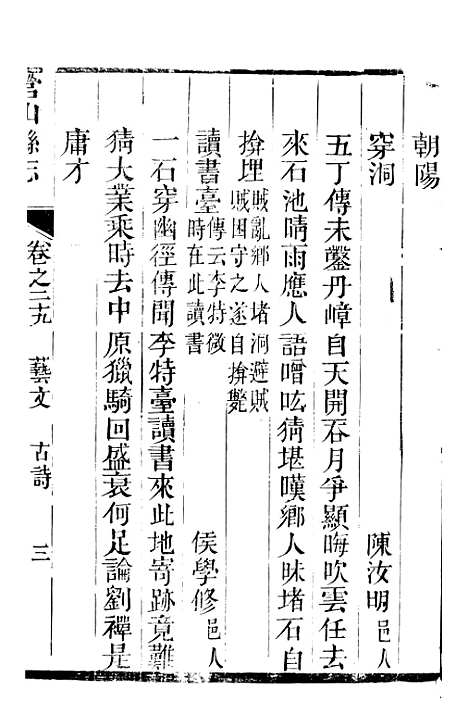 朝陽
穿洞　陳汝明邑人
五丁傳未鑿丹嶂自天開吞月爭顯晦吹雲任去
來石池晴雨應人語噌吰猜堪嘆鄉人昧堵石自
揜埋賊亂鄉人堵洞避賊賊困守之遂自揜斃
讀書臺傳云李特微時在此讀書　侯學修邑人
一石穿幽徑傳聞李特臺讀書來此地寄跡竟難
猜大業乘時去中原獵騎回盛衰何足論劉禪是
庸才
營山縣志　卷之二九　藝文　古詩　三